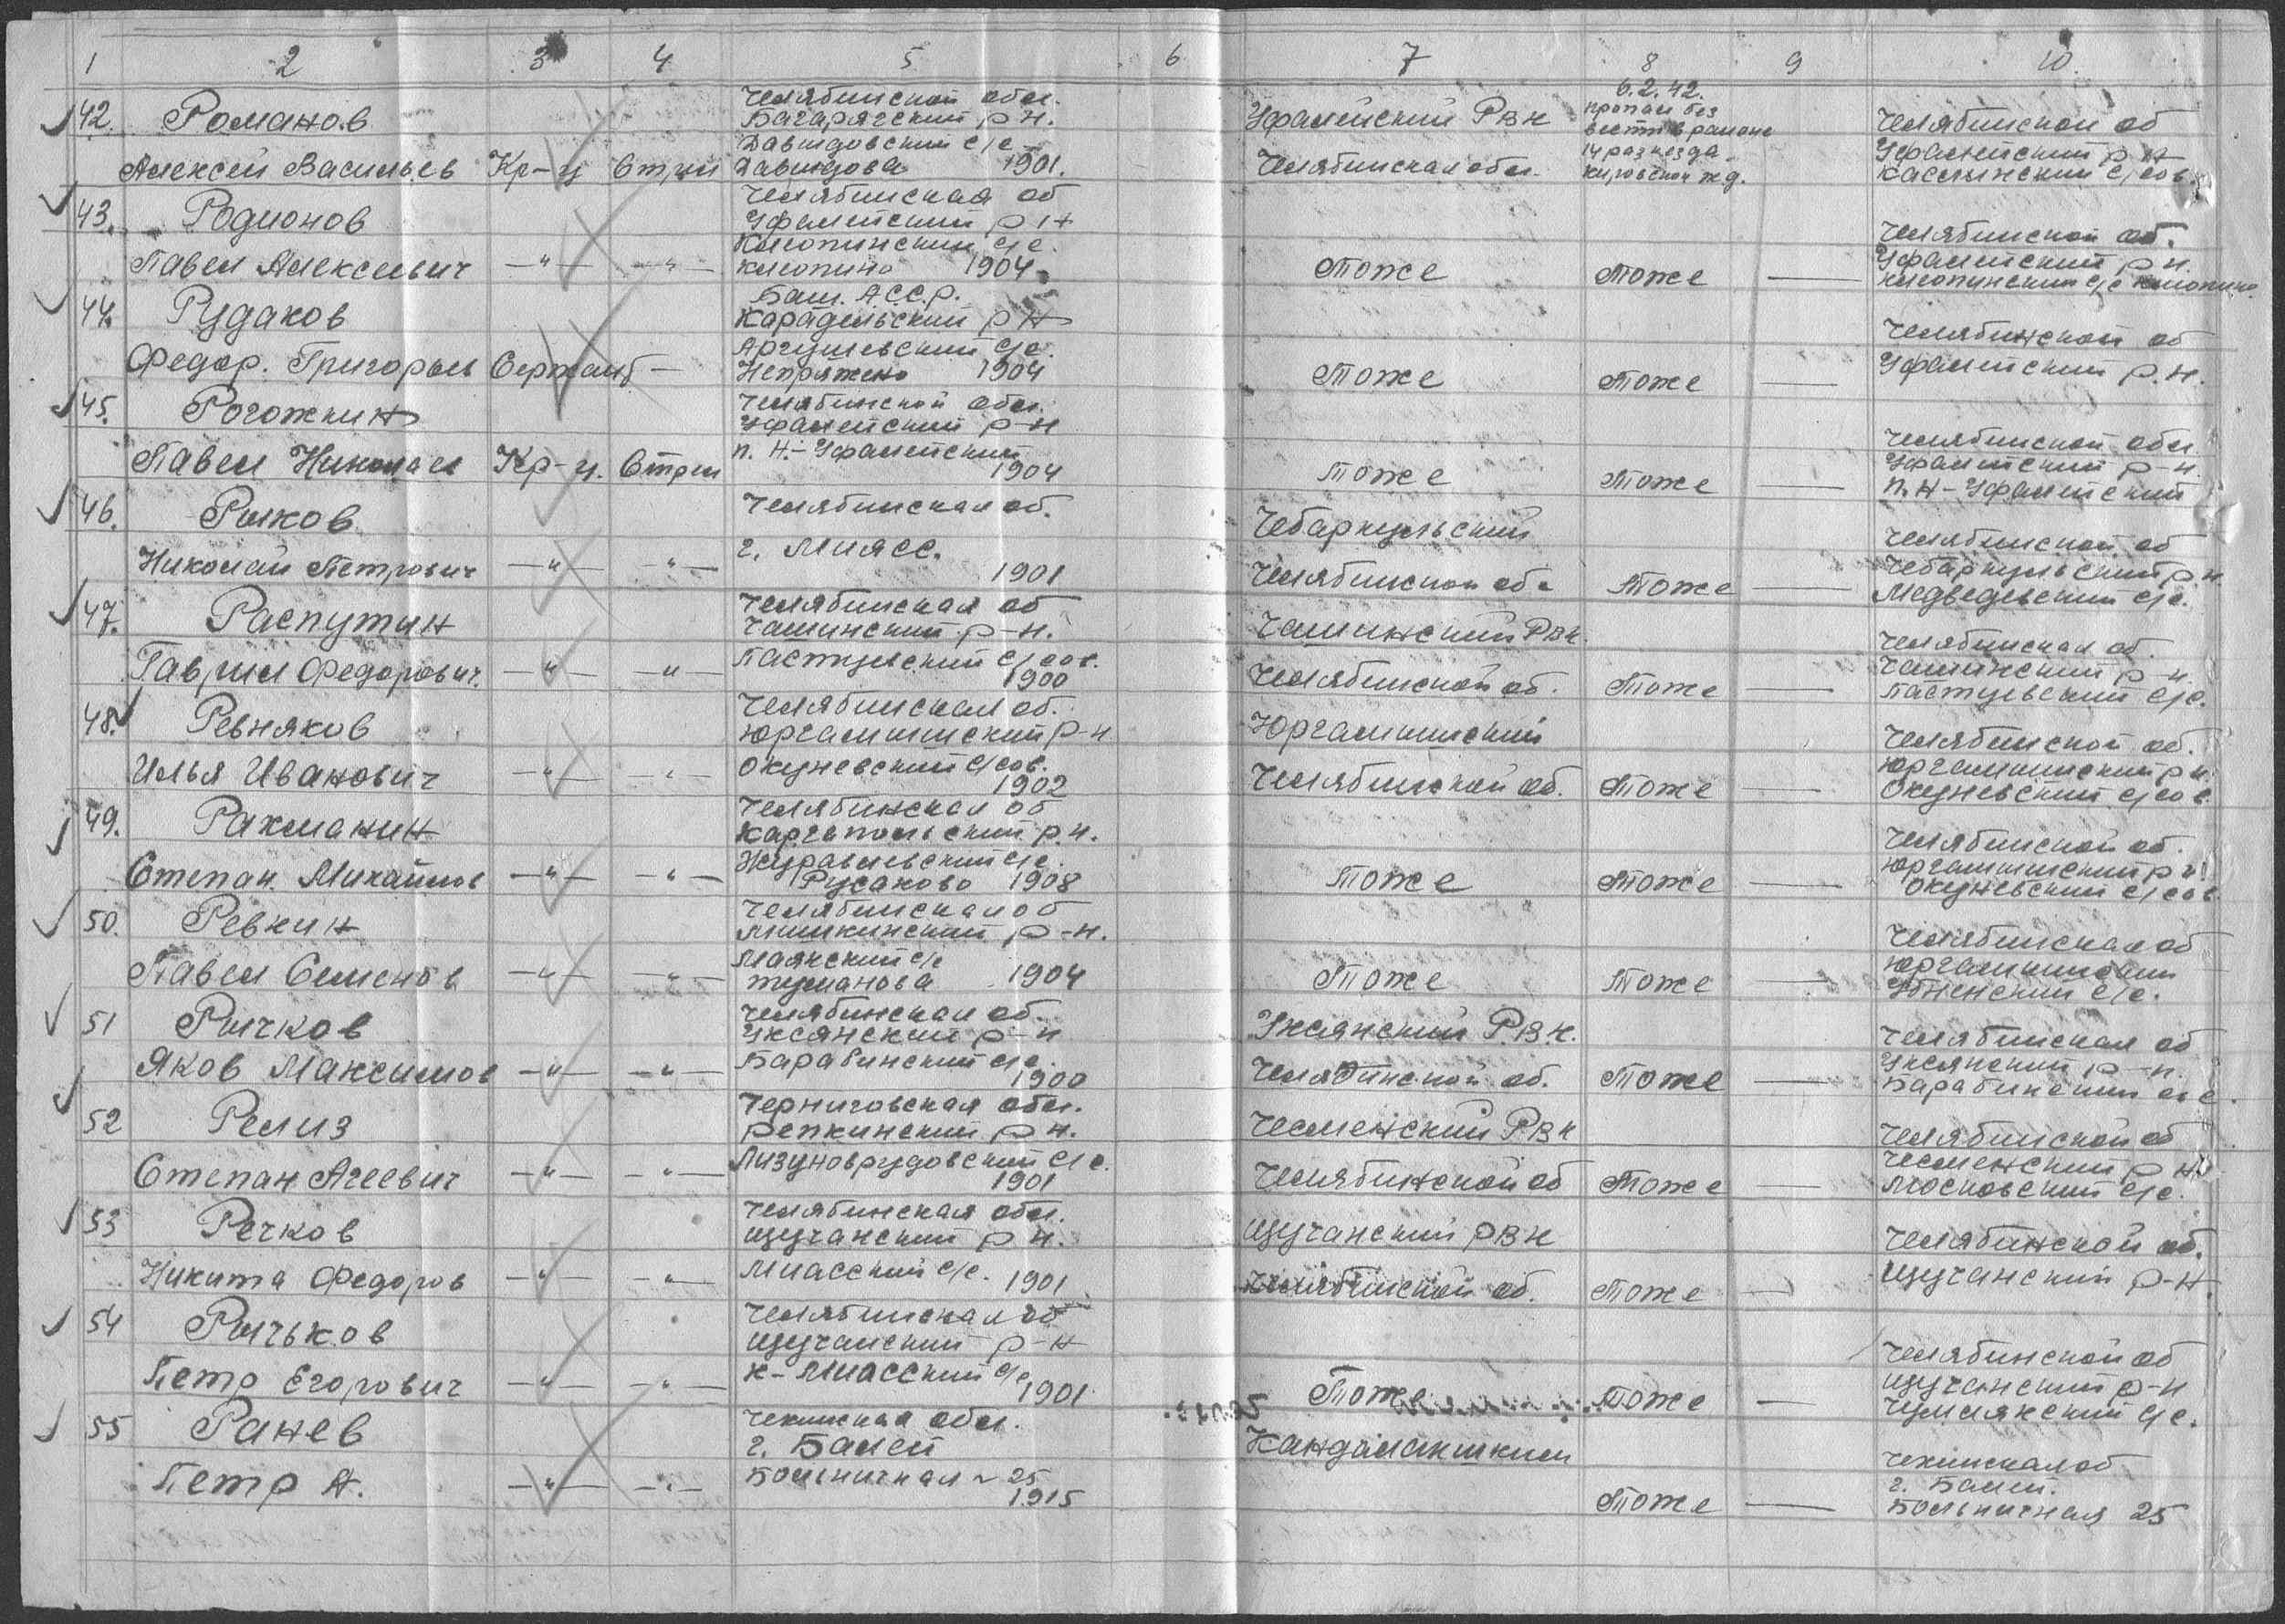 1 2 3 4 5 6 7 8 9 10
42. Романов
Алексей Васильев Кр-ц Стрел
Челябинской обл.
Багарягский р н.
Давыдовский с/с
Давыдова 1901.
Уфалейский РВК
Челябинская обл.
6.2.42.
пропал без
вести в районе
14 разъезда
кировской жд.
Челябинской об
Уфалейский р н
Каслинский с/сов.
43. Родионов
Павел Алексеевич —"— —"—
Челябинская об
Уфалейский р н
Клопинский с/с.
Клопино 1904
Тоже Тоже —
Челябинской об.
Уфалейский р н.
Клопинский с/с Клопино
44. Рудаков
Федор. Григорьев Сержант —
Баш. А.С.С.р.
Карадельский р н
Аргушевский с/с.
Непряжено 1904
Тоже Тоже —
Челябинской об
Уфалейский р.н.
45. Рогожкин
Павел Николаев Кр-ц. Стрел
Челябинской обл.
Уфалейский р-н
п. Н.-Уфалейский
1904
Тоже Тоже —
Челябинской обл
Уфалейский р-н.
п. Н-Уфалейский
46. Рыков
Николай Петрович —"— —"—
Челябинская об.
г. Миасс.
1901
Чебаркульский
Челябинской об. Тоже —
Челябинской об
Чебаркульский р.н.
Медведевский с/с.
47. Распутин
Гаврил Федорович. —"— "
Челябинская об
Чашинский р-н.
Пастуевский с/сов.
1900
Чашинский РВК.
Челябинской об. Тоже —
Челябинская об.
Чашинский р-н.
Пастуевский с/с.
48. Ревняков
Илья Иванович —"— —"—
Челябинская об.
Юргамышский р-н
Окуневский с/сов.
1902
Юргамышский
Челябинской об. Тоже —
Челябинской об.
Юргамышский р н.
Окуневский с/сов.
49. Рахманин
Степан. Михайлов —"— —"—
Челябинская об
Каргапольский р.н.
Журавлевский с/с.
Русаково 1908
Тоже Тоже —
Челябинской об.
Юргамышский р н
Окуневский с/сов.
50. Ревкин
Павел Семенов —"— —"—
Челябинская об
Мишкинский р-н.
Маякский с/с
туманова 1904
Тоже Тоже —
Челябинская об
Юргамышский
с/с.
51 Рычков
Яков Максимов —"— —"—
Челябинская об.
Уксянский р-н
Барабинский с/с.
1900
Уксянский Р.В.К.
Челябинской об. Тоже —
Челябинская об
Уксянский р-н.
Барабинский с/с.
52 Релиз
Степан Агеевич —"— —"—
Черниговская обл.
репкинский р н.
Лизуноврудовский с/с.
1901
Чесменский РВК
Челябинской об Тоже —
Челябинской об
Чесменский р н
Московский с/с.
53 Речков
Никита Федоров —"— —"—
Челябинская обл.
Щучанский р н.
Миасский с/с. 1901
Щучанский РВК
Челябинской об. Тоже —
Челябинской об.
Щучанский р-н
54 Рычьков
Петр Егорович —"— —"—
Челябинская об
Щучанский р-н
К-Миасский с/с
1901
Тоже Тоже —
Челябинской об
Щучанский р-н
Чумлякский с/с.
55 Ранев
Петр А. —"— —"—
Чекинская обл.
г. Балей
Больничная 25
1915
Кандалакшким
Тоже —
Чекинская об
г. Балей.
Больничная 25